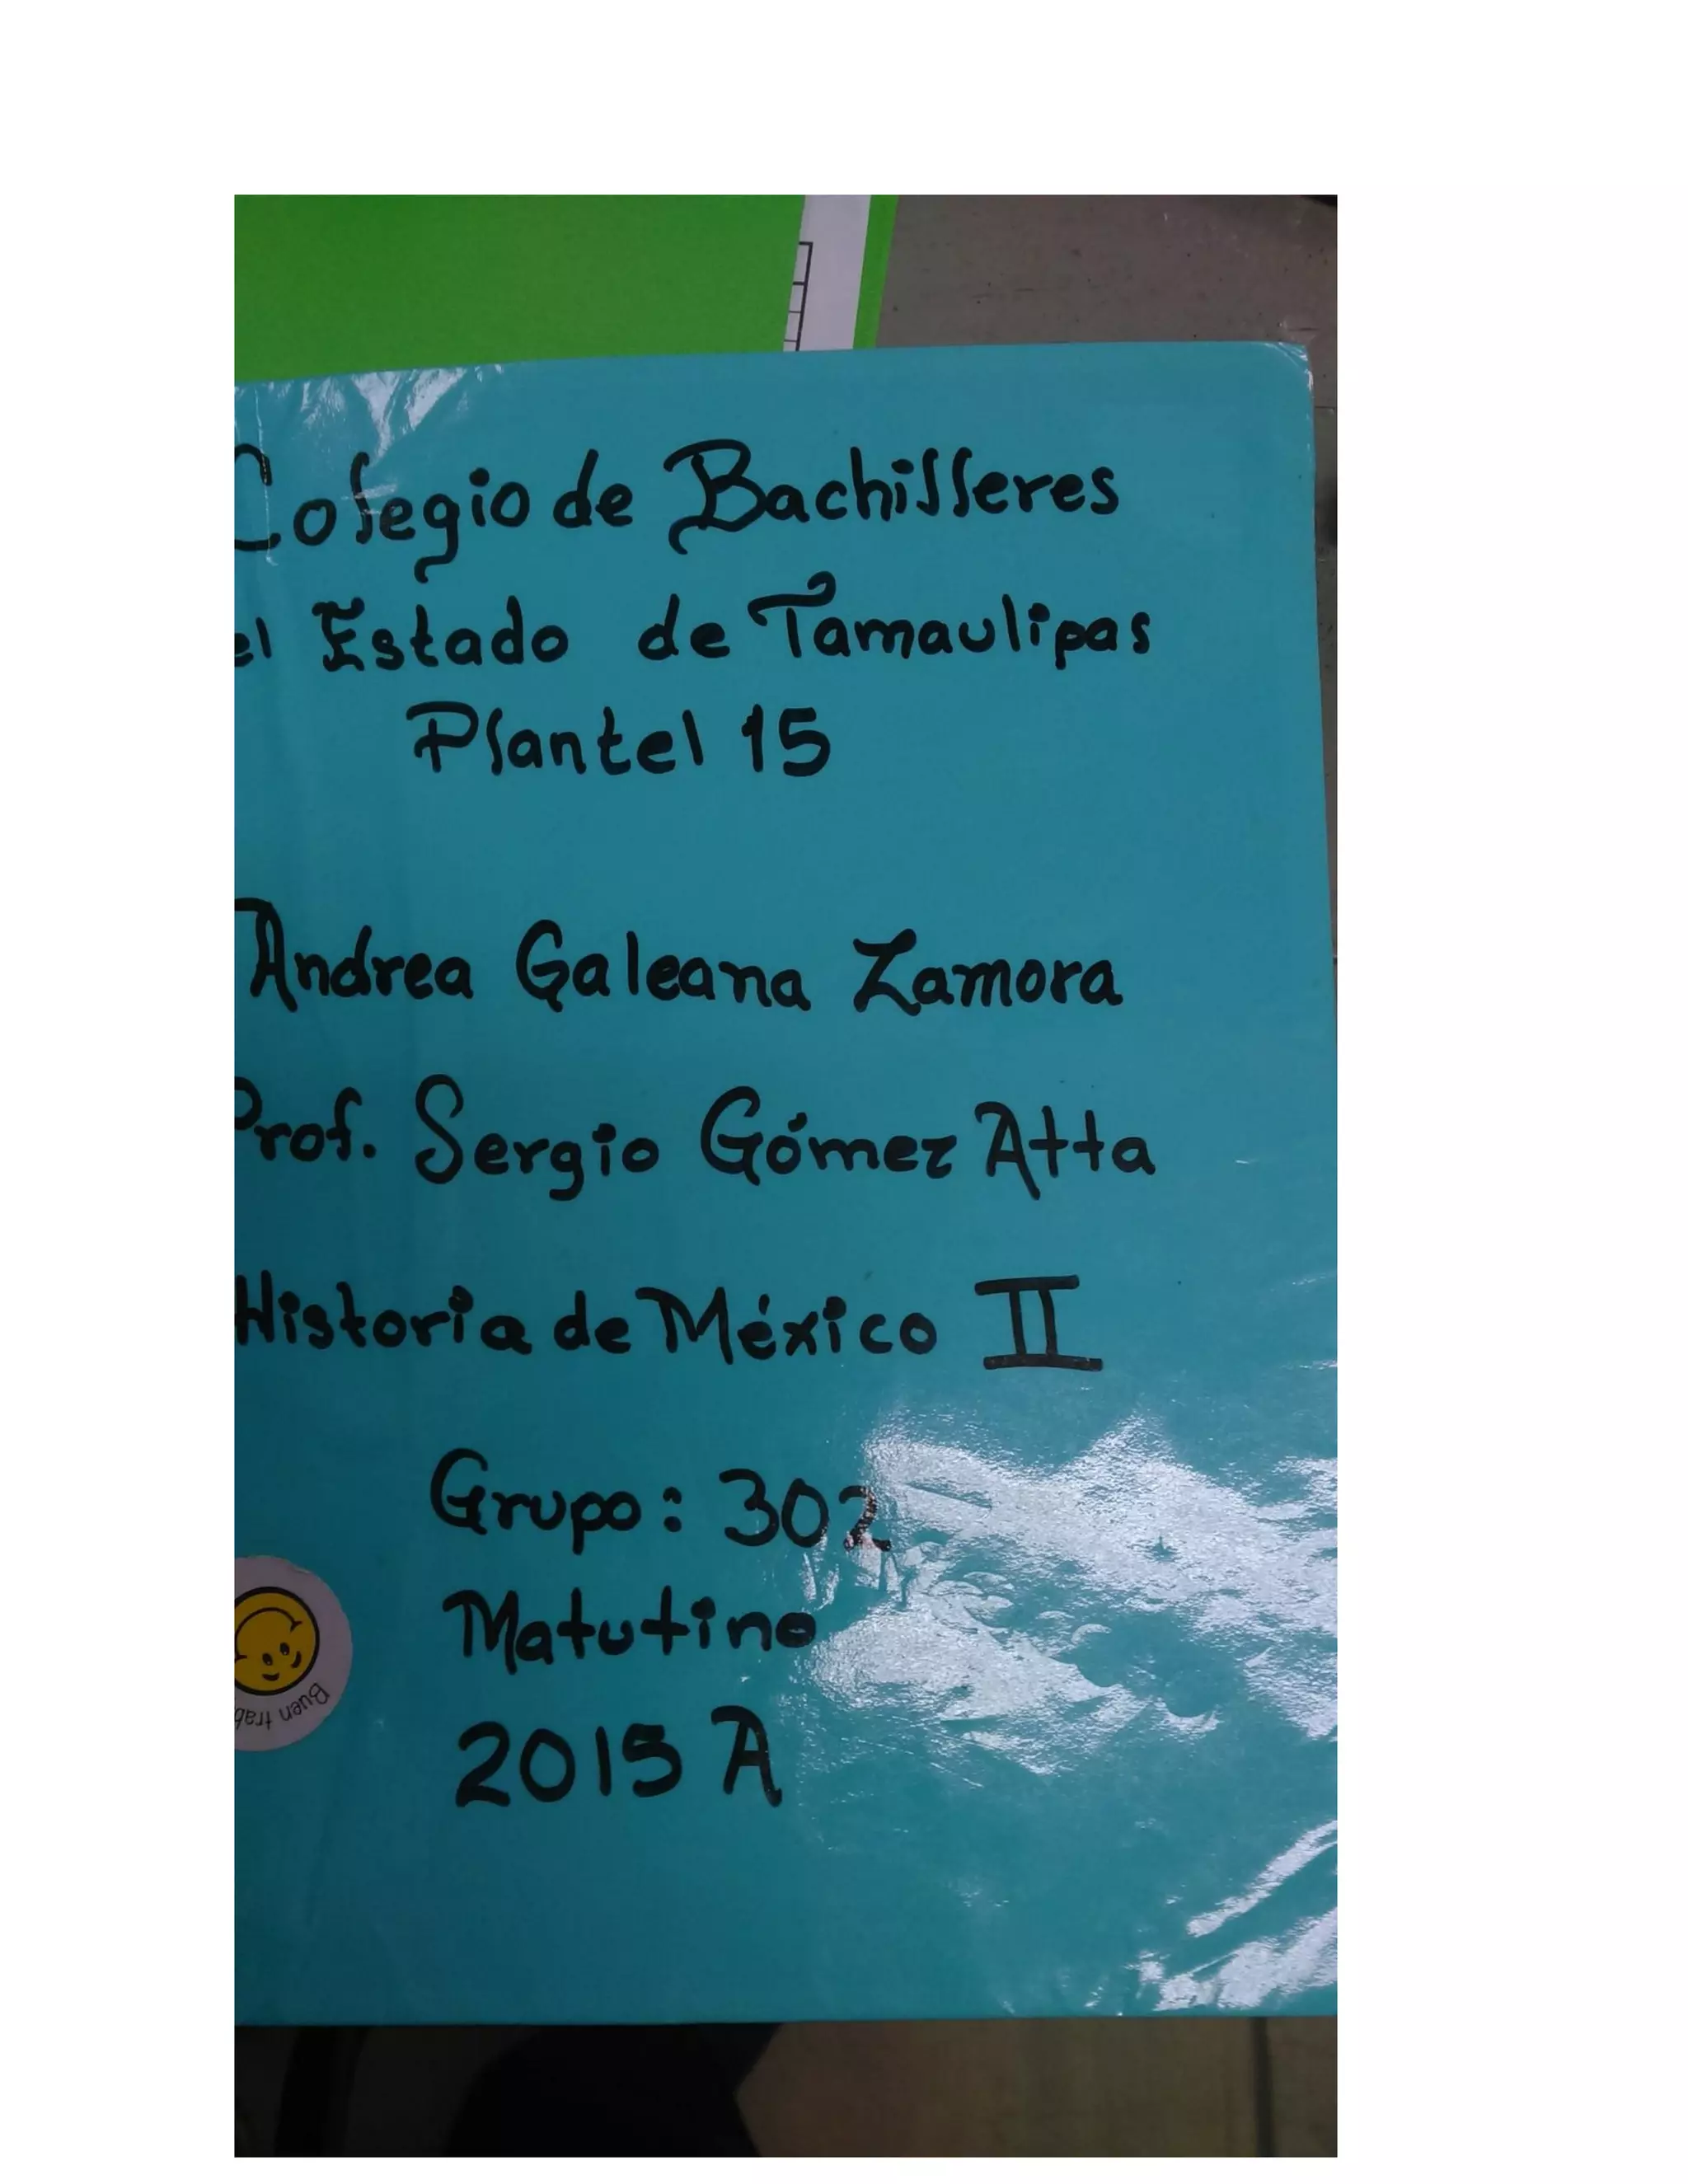 Colegio de Bachilleres
el Estado de Tamaulipas
Plantel 15
Andrea Galeana Zamora
Prof. Sergio Gómez Atta
Historia de México II
Grupo: 302
Matutino
2015 A
Buen trab